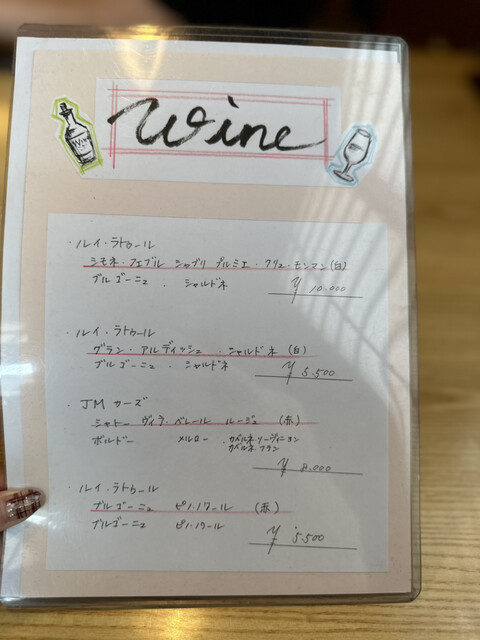 Wine
Wine
・ルイ・ラトゥール
シモネ・フェブル シャブリ プルミエ・クリュ・モンマン(白)
ブルゴーニュ ・ シャルドネ
¥ 10.000
・ルイ・ラトゥール
グラン・アルディッシュ・シャルドネ (白)
ブルゴーニュ ・ シャルドネ
¥ 5.500
・JM カーズ
シャトー ヴィラ・ベレール ルージュ (赤)
ボルドー メルロー ・カベルネ・ソーヴィニヨン
カベルネ・フラン
¥ 8.000
・ルイ・ラトゥール
ブルゴーニュ ピノ・ノワール (赤)
ブルゴーニュ ピノ・ノワール
¥ 5.500